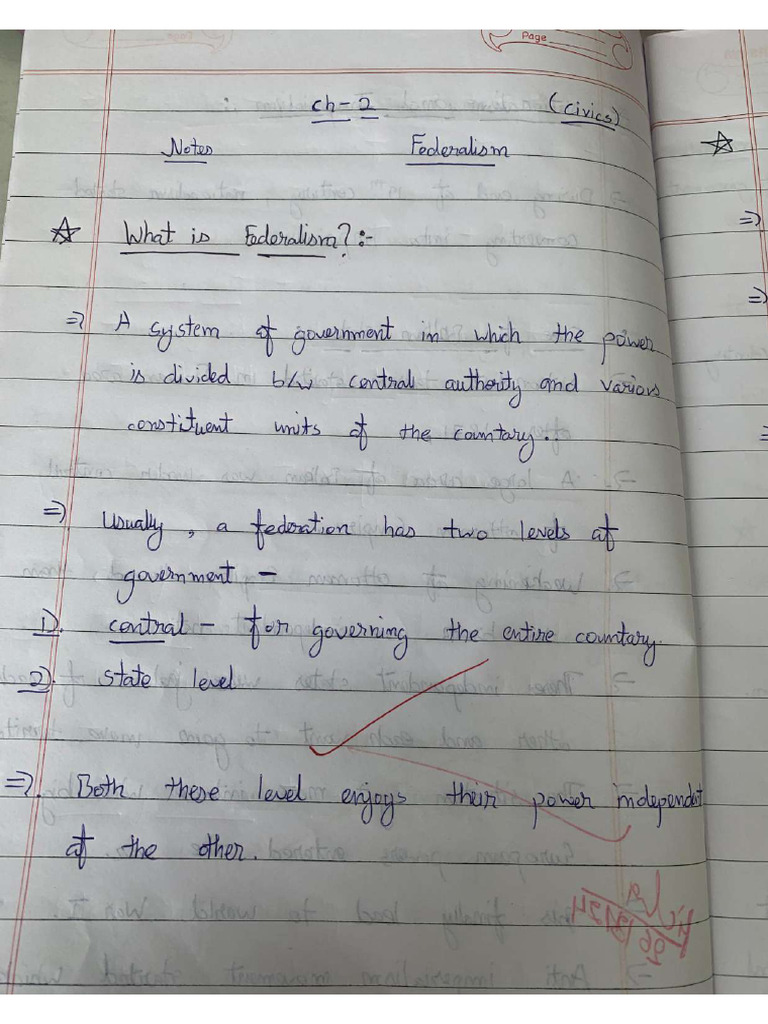 Page
ch-2 (civics)
Notes Federalism
☆ What is Federalism? :-
⇒ A system of government in which the power
is divided b/w central authority and various
constituent units of the countary.
⇒ Usually, a federation has two levels of
government -
1). central - for governing the entire countary.
2). state level
⇒. Both these level enjoys their power independent
of the other.